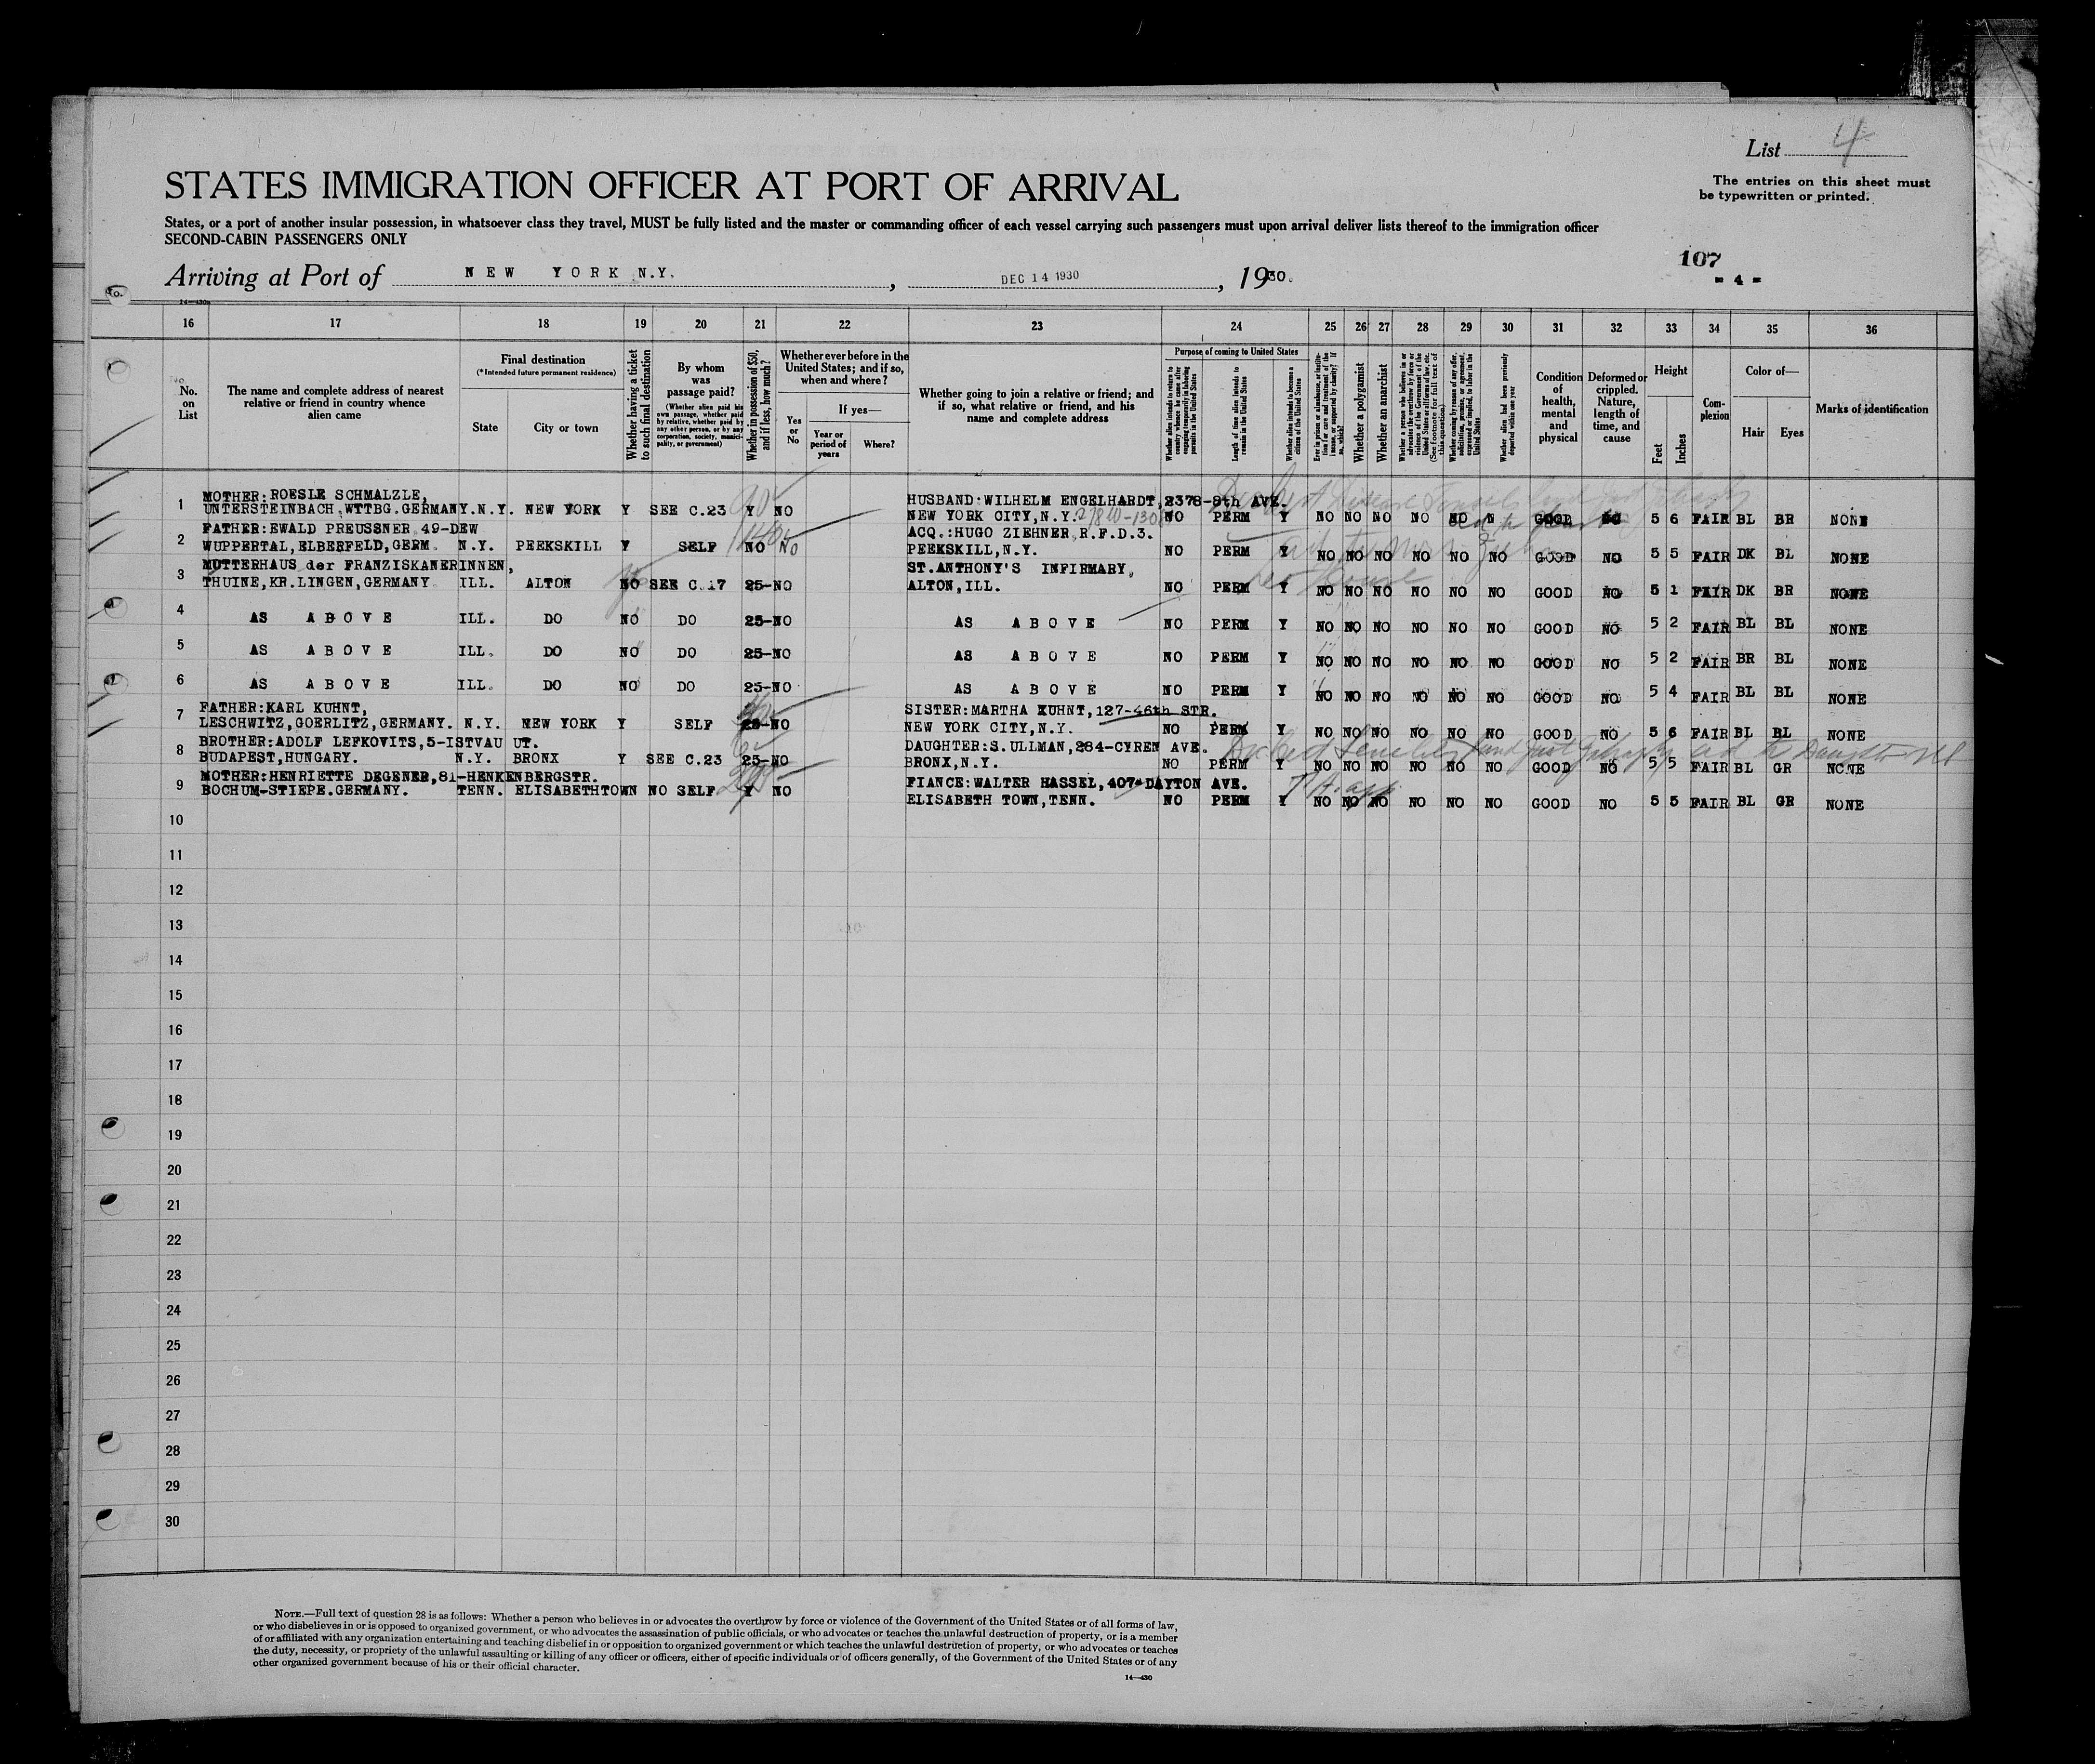 List 4
STATES IMMIGRATION OFFICER AT PORT OF ARRIVAL
The entries on this sheet must
be typewritten or printed.
States, or a port of another insular possession, in whatsoever class they travel, MUST be fully listed and the master or commanding officer of each vessel carrying such passengers must upon arrival deliver lists thereof to the immigration officer
SECOND-CABIN PASSENGERS ONLY
107
Arriving at Port of NEW YORK N.Y. , DEC 14 1930 , 1930.
- 4 -
16 17 18 19 20 21 22 23 24 25 26 27 28 29 30 31 32 33 34 35 36
No. on List
The name and complete address of nearest relative or friend in country whence alien came
Final destination
(*Intended future permanent residence)
State
City or town
Whether having a ticket to such final destination
By whom was passage paid?
(Whether alien paid his own passage, whether paid by relative, whether paid by any other person, or by any corporation, society, municipality, or government)
Whether in possession of $50, and if less, how much?
Whether ever before in the United States; and if so, when and where?
Yes or No
If yes—
Year or period of years
Where?
Whether going to join a relative or friend; and if so, what relative or friend, and his name and complete address
Purpose of coming to United States
Whether alien intends to return to country whence he came after engaging temporarily in laboring pursuits in the United States
Length of time alien intends to remain in the United States
Whether alien intends to become a citizen of the United States
Ever in prison or almshouse, or institution for care and treatment of the insane, or supported by charity? If so, which?
Whether a polygamist
Whether an anarchist
Whether a person who believes in or advocates the overthrow by force or violence of the Government of the United States or all forms of law, etc. (See footnote for full text of this question.)
Whether coming by reason of any offer, solicitation, promise, or agreement, expressed or implied, to labor in the United States
Whether alien had been previously deported within one year
Condition of health, mental and physical
Deformed or crippled. Nature, length of time, and cause
Height
Feet
Inches
Complexion
Color of—
Hair
Eyes
Marks of identification
1 MOTHER:ROESLE SCHMALZLE,
UNTERSTEINBACH,WTTBG.GERMANY. N.Y. NEW YORK Y SEE C.23 Y NO
HUSBAND:WILHELM ENGELHARDT,2378-8th AVE.
NEW YORK CITY,N.Y. NO PERM Y NO NO NO NO NO GOOD NO 5 6 FAIR BL BR NONE
2 FATHER:EWALD PREUSSNER 49-DEW
WUPPERTAL,ELBERFELD,GERM. N.Y. PEEKSKILL Y SELF NO No
ACQ.:HUGO ZIEHNER R.F.D.3.
PEEKSKILL,N.Y. NO PERM Y NO NO NO NO NO NO GOOD NO 5 5 FAIR DK BL NONE
3 MUTTERHAUS der FRANZISKANERINNEN,
THUINE,KR.LINGEN,GERMANY ILL. ALTON NO SEE C.17 25- NO
ST.ANTHONY'S INFIRMARY,
ALTON,ILL. NO PERM Y NO NO NO NO NO NO GOOD NO 5 1 FAIR DK BR NONE
4 AS ABOVE ILL. DO NO DO 25- NO AS ABOVE NO PERM Y NO NO NO NO NO NO GOOD NO 5 2 FAIR BL BL NONE
5 AS ABOVE ILL. DO NO DO 25- NO AS ABOVE NO PERM Y NO NO NO NO NO NO GOOD NO 5 2 FAIR BR BL NONE
6 AS ABOVE ILL. DO NO DO 25- NO AS ABOVE NO PERM Y NO NO NO NO NO NO GOOD NO 5 4 FAIR BL BL NONE
7 FATHER:KARL KUHNT,
LESCHWITZ,GOERLITZ,GERMANY. N.Y. NEW YORK Y SELF 25- NO
SISTER:MARTHA KUHNT,127-46th STR.
NEW YORK CITY,N.Y. NO PERM Y NO NO NO NO NO NO GOOD NO 5 6 FAIR BL BL NONE
8 BROTHER:ADOLF LEFKOVITS,5-ISTVAU UT.
BUDAPEST,HUNGARY. N.Y. BRONX Y SEE C.23 25- NO
DAUGHTER:S.ULLMAN,284-CYREN AVE.
BRONX,N.Y. NO PERM Y NO NO NO NO NO NO GOOD NO 5 5 FAIR BL GR NONE
9 MOTHER:HENRIETTE DEGENER,81-HENKENBERGSTR.
BOCHUM-STIEPE.GERMANY. TENN. ELISABETHTOWN NO SELF Y NO
FIANCE:WALTER HASSEL,407-DAYTON AVE.
ELISABETH TOWN,TENN. NO PERM Y NO NO NO NO NO NO GOOD NO 5 5 FAIR BL GR NONE
10
11
12
13
14
15
16
17
18
19
20
21
22
23
24
25
26
27
28
29
30
NOTE.—Full text of question 28 is as follows: Whether a person who believes in or advocates the overthrow by force or violence of the Government of the United States or of all forms of law,
or who disbelieves in or is opposed to organized government, or who advocates the assassination of public officials, or who advocates or teaches the unlawful destruction of property, or is a member
of or affiliated with any organization entertaining and teaching disbelief in or opposition to organized government or which teaches the unlawful destruction of property, or who advocates or teaches
the duty, necessity, or propriety of the unlawful assaulting or killing of any officer or officers, either of specific individuals or of officers generally, of the Government of the United States or of any
other organized government because of his or their official character.
14—430